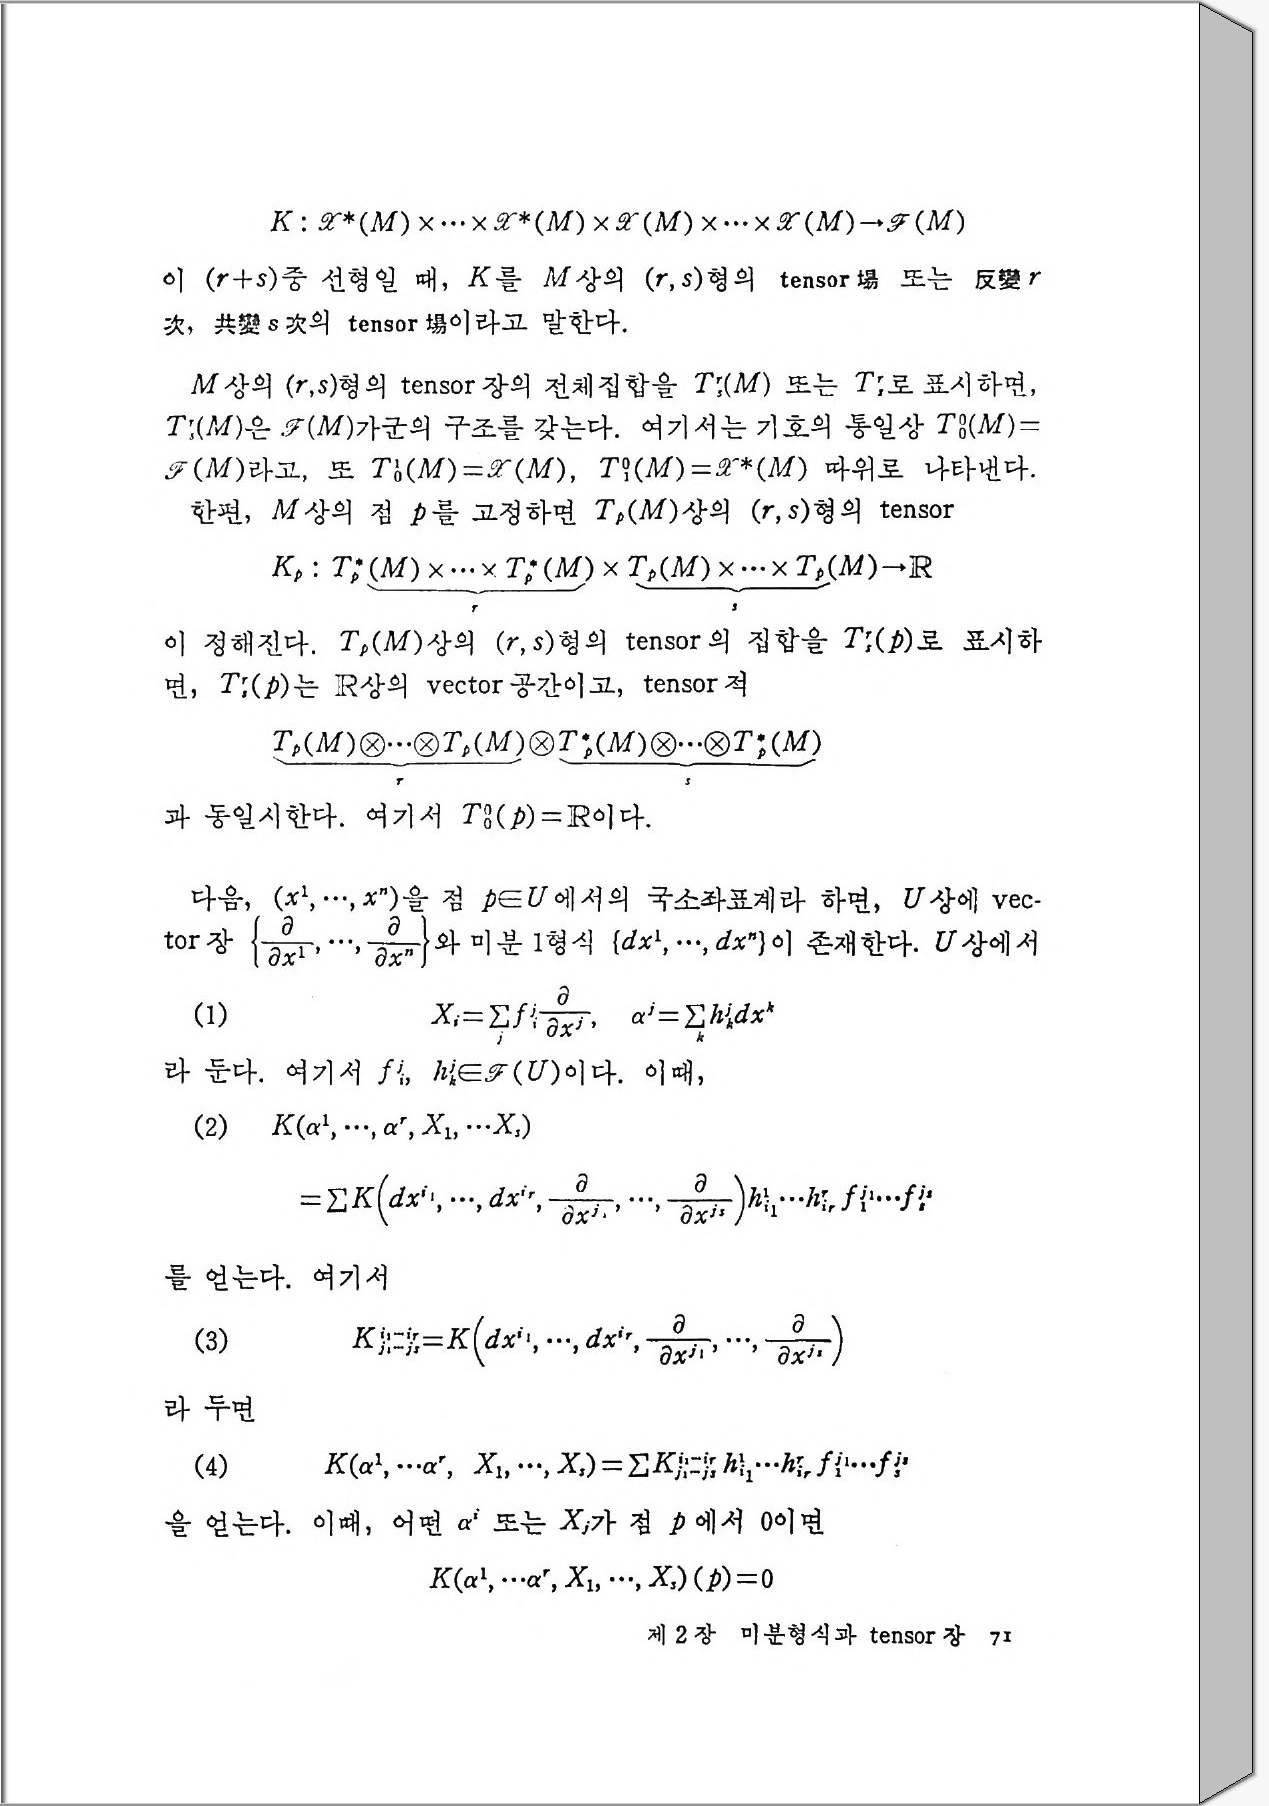 K : 𝒳*(M)×⋯×𝒳*(M)×𝒳(M)×⋯×𝒳(M)→ℱ(M)
이 (r+s)중 선형일 때, K를 M상의 (r, s)형의 tensor場 또는 反變 r
次, 共變 s 次의 tensor場이라고 말한다.
M상의 (r,s)형의 tensor장의 전체집합을 Tʳₛ(M) 또는 Tʳₛ로 표시하면,
Tʳₛ(M)은 ℱ(M)가군의 구조를 갖는다. 여기서는 기호의 통일상 T⁰₀(M)=
ℱ(M)라고, 또 T¹₀(M)=𝒳(M), T⁰₁(M)=𝒳*(M) 따위로 나타낸다.
한편, M상의 점 p를 고정하면 Tₚ(M)상의 (r, s)형의 tensor
Kₚ : Tₚ*(M)×⋯×Tₚ*(M)×Tₚ(M)×⋯×Tₚ(M)→ℝ
r s
이 정해진다. Tₚ(M)상의 (r, s)형의 tensor의 집합을 Tʳₛ(p)로 표시하
면, Tʳₛ(p)는 ℝ상의 vector공간이고, tensor적
Tₚ(M)⊗⋯⊗Tₚ(M)⊗T*ₚ(M)⊗⋯⊗T*ₚ(M)
r s
과 동일시한다. 여기서 T⁰₀(p)=ℝ이다.
다음, (x¹, ⋯, xⁿ)을 점 p∈U에서의 국소좌표계라 하면, U상에 vec-
tor장 {∂/∂x¹, ⋯, ∂/∂xⁿ}와 미분 1형식 {dx¹, ⋯, dxⁿ}이 존재한다. U상에서
(1) X_i=∑_j f^j_i ∂/∂x^j, α^j=∑_k h^j_k dx^k
라 둔다. 여기서 f^j_i, h^j_k∈ℱ(U)이다. 이때,
(2) K(α¹, ⋯, α^r, X₁, ⋯X_s)
=∑K(dx^{i₁}, ⋯, dx^{i_r}, ∂/∂x^{j₁}, ⋯, ∂/∂x^{j_s})h^1_{i₁}⋯h^r_{i_r} f^{j₁}_1⋯f^{j_s}_s
를 얻는다. 여기서
(3) K^{i₁⋯i_r}_{j₁⋯j_s}=K(dx^{i₁}, ⋯, dx^{i_r}, ∂/∂x^{j₁}, ⋯, ∂/∂x^{j_s})
라 두면
(4) K(α¹, ⋯α^r, X₁, ⋯, X_s)=∑K^{i₁⋯i_r}_{j₁⋯j_s} h^1_{i₁}⋯h^r_{i_r} f^{j₁}_1⋯f^{j_s}_s
을 얻는다. 이때, 어떤 α^i 또는 X_j가 점 p에서 0이면
K(α¹, ⋯α^r, X₁, ⋯, X_s)(p)=0
제 2 장 미분형식과 tensor장 71